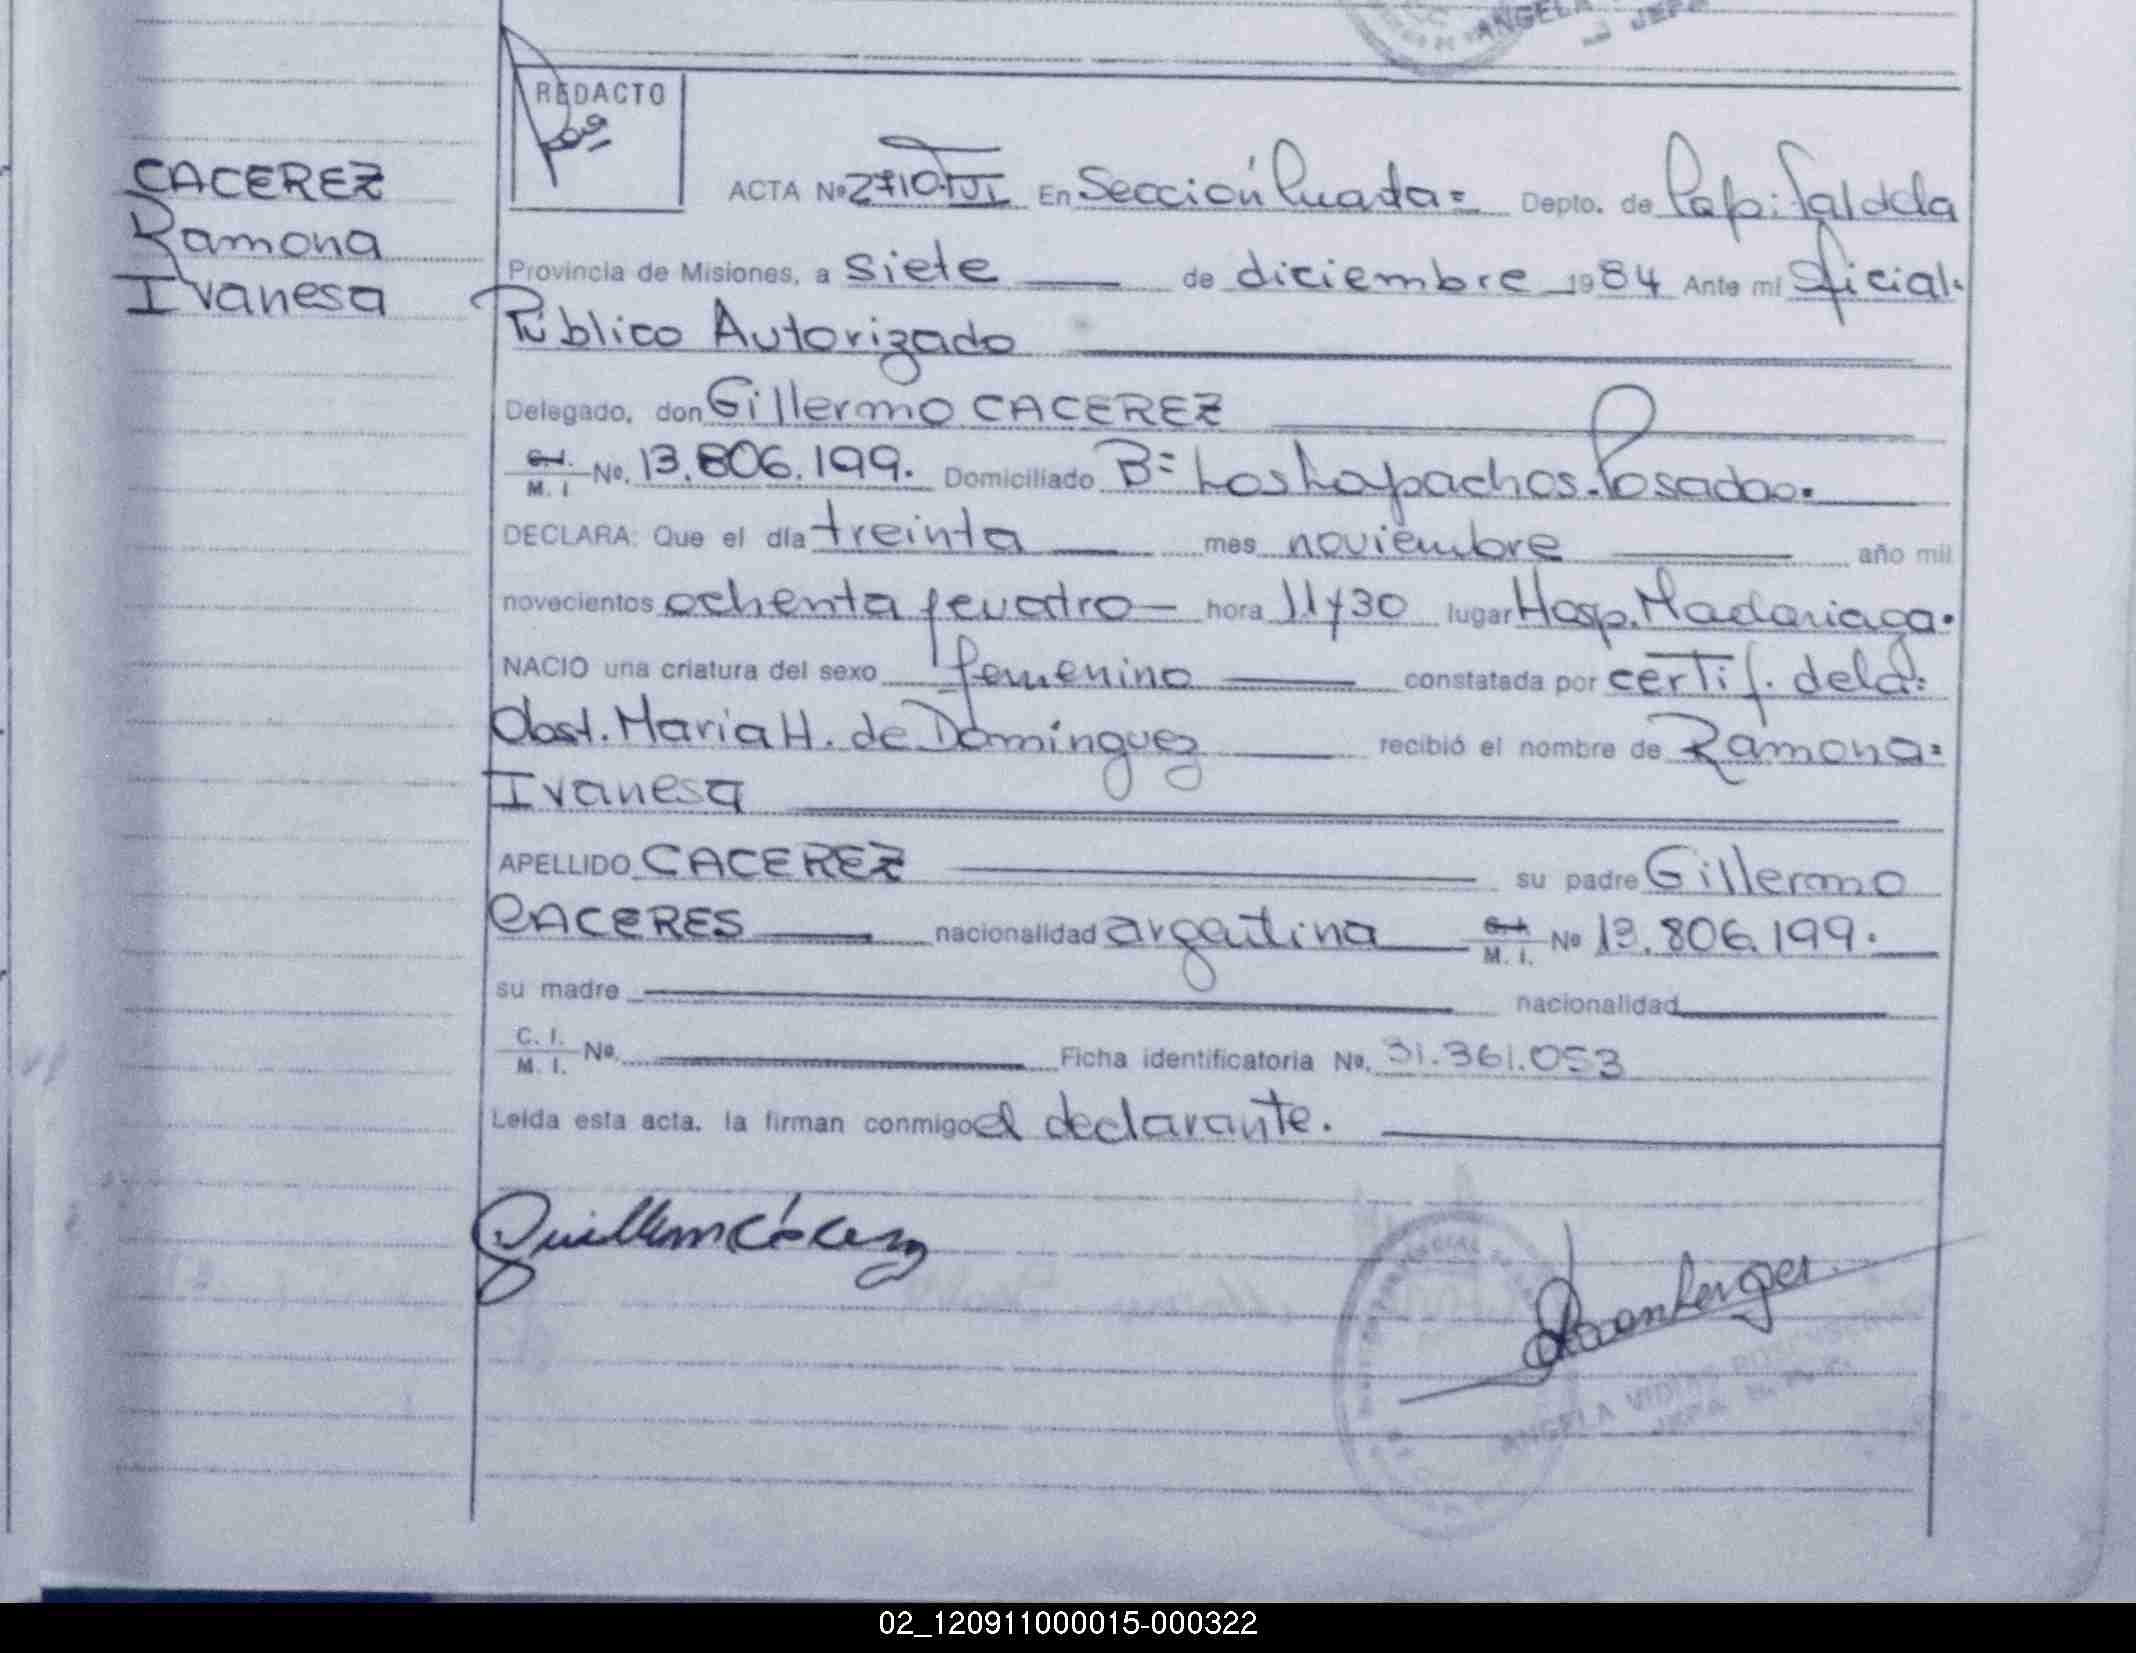 ANGELA
JEFA
REDACTO
CACEREZ
Ramona
Ivanesa
ACTA Nº 2710 En Sección Cuarta= Depto. de Capital dela
Provincia de Misiones, a siete de diciembre 1984 Ante mi Oficial.
Público Autorizado
Delegado, don Gillermo CACEREZ
C.I. M. I. No. 13.806.199. Domiciliado Bº Los Lapachos. Posadas.
DECLARA: Que el día treinta mes noviembre año mil
novecientos ochenta y cuatro hora 11y30 lugar Hosp. Madariaga.
NACIO una criatura del sexo femenino constatada por certif. dela=
Obst. Maria H. de Dominguez recibió el nombre de Ramona=
Ivanesa
APELLIDO CACEREZ su padre Gillermo
CACERES nacionalidad argentina C.I. M. I. Nº 13.806.199.
su madre nacionalidad
C. I. M. I. No. Ficha identificatoria No. 31.361.053
Leída esta acta. la firman conmigo el declarante.
ANGELA
JEFA
02_120911000015-000322